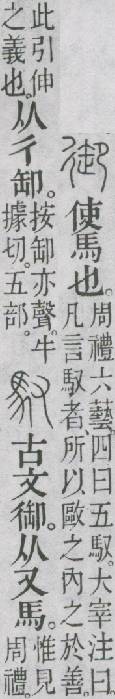 御使馬也。周禮六藝、四曰五馭。大宰注曰凡言馭者、所以歐之內之於善。
此引伸之義也。从彳卸。按卸亦聲。牛據切。五部。馭古文御。从又馬。惟見周禮。